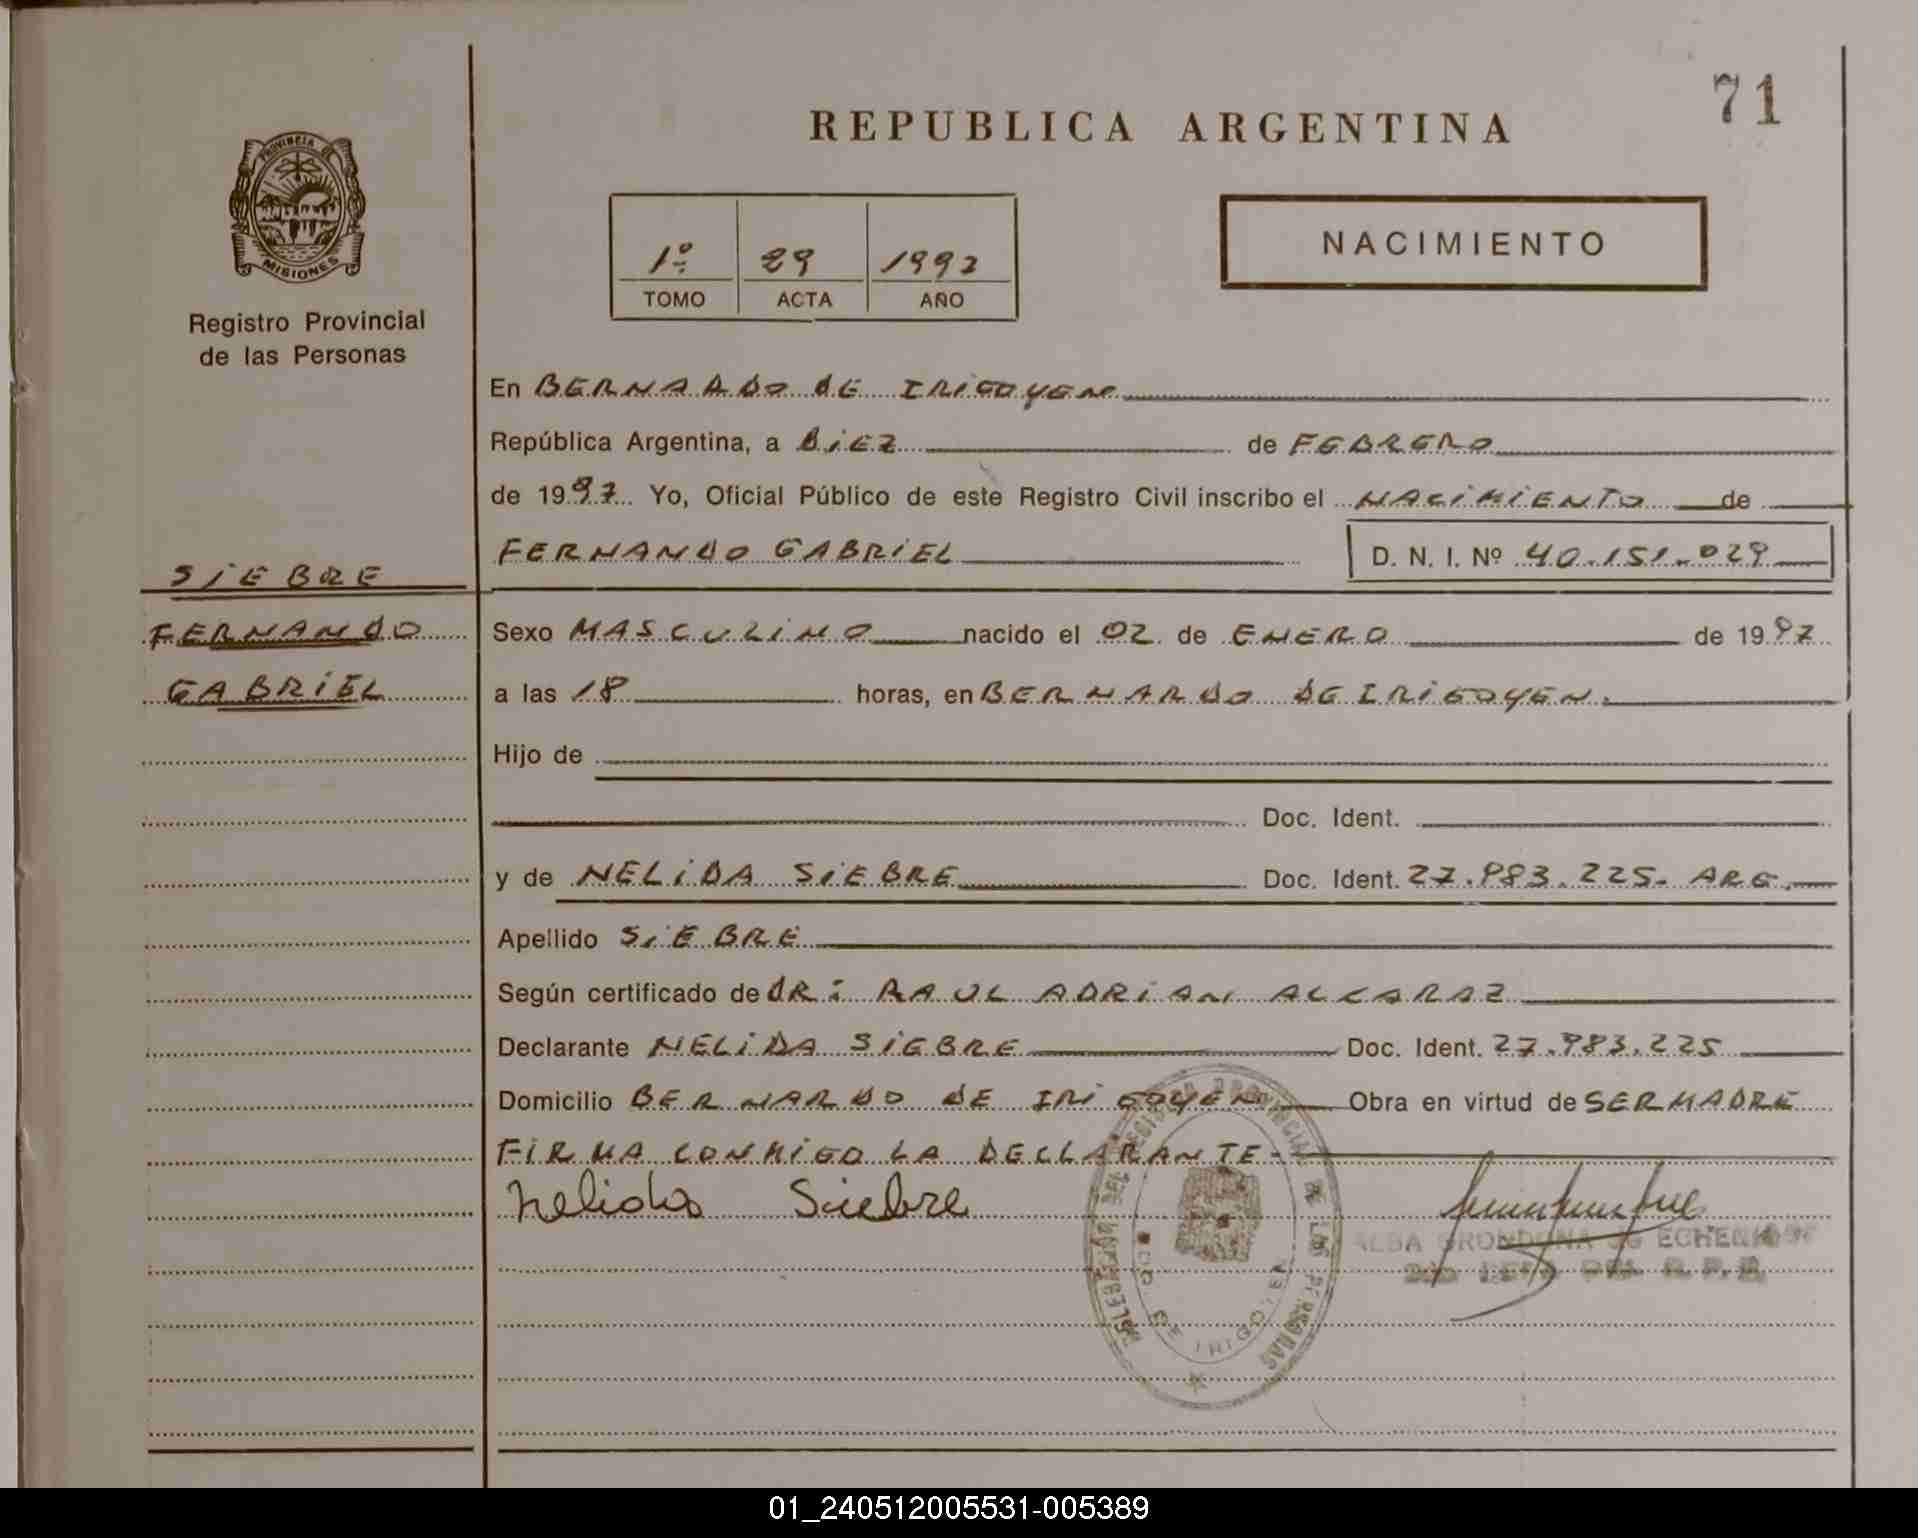 71
REPUBLICA ARGENTINA
PROVINCIA DE
MISIONES
Registro Provincial
de las Personas
1º 29 1997
TOMO ACTA AÑO
NACIMIENTO
En BERNARDO DE IRIGOYEN
República Argentina, a DIEZ de FEBRERO
de 1997 Yo, Oficial Público de este Registro Civil inscribo el NACIMIENTO de
FERNANDO GABRIEL D. N. I. Nº 40.151.029
SIEBRE
FERNANDO
GABRIEL
Sexo MASCULINO nacido el 02 de ENERO de 1997
a las 18 horas, en BERNARDO DE IRIGOYEN.
Hijo de
Doc. Ident.
y de NELIDA SIEBRE Doc. Ident. 27.983.225. ARG.
Apellido SIEBRE
Según certificado de DR: RAUL ADRIAN ALCARAZ
Declarante NELIDA SIEBRE Doc. Ident. 27.983.225
Domicilio BERNARDO DE IRIGOYEN Obra en virtud de SER MADRE
FIRMA CONMIGO LA DECLARANTE-
Nelida Siebre
DEL REGISTRO PROVINCIAL DE LAS PERSONAS
DE IRIGOYEN
ALBA GRONDONA DE ECHENIQUE
01_240512005531-005389